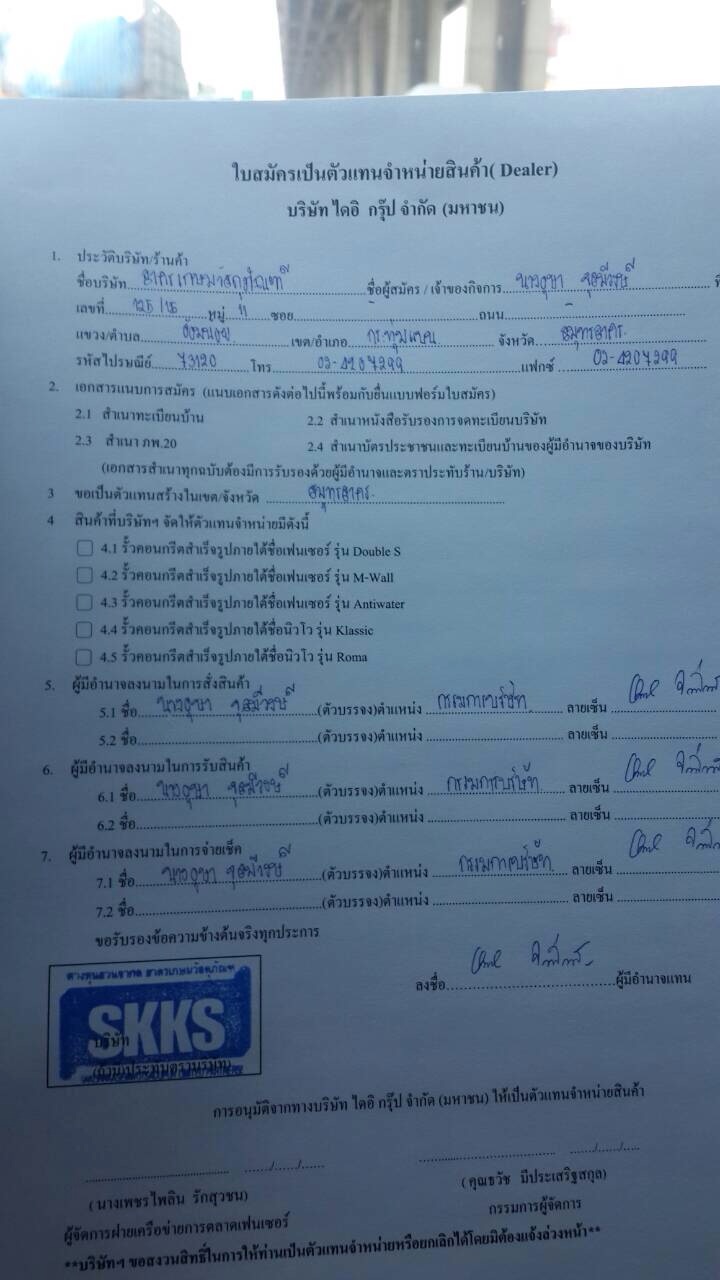 ใบสมัครเป็นตัวแทนจำหน่ายสินค้า( Dealer)
บริษัท ไดอิ กรุ๊ป จำกัด (มหาชน)
1. ประวัติบริษัท/ร้านค้า
ชื่อบริษัท สาครเกษมวัสดุภัณฑ์ ชื่อผู้สมัคร / เจ้าของกิจการ
เลขที่ 125/15 หมู่ 11 ซอย - ถนน -
แขวง/ตำบล อ้อมน้อย เขต/อำเภอ กระทุ่มแบน จังหวัด สมุทรสาคร
รหัสไปรษณีย์ 73120 โทร 02-4207299 แฟกซ์ 02-4207299
2. เอกสารแนบการสมัคร (แนบเอกสารดังต่อไปนี้พร้อมกับยื่นแบบฟอร์มใบสมัคร)
2.1 สำเนาทะเบียนบ้าน 2.2 สำเนาหนังสือรับรองการจดทะเบียนบริษัท
2.3 สำเนา ภพ.20 2.4 สำเนาบัตรประชาชนและทะเบียนบ้านของผู้มีอำนาจของบริษัท
(เอกสารสำเนาทุกฉบับต้องมีการรับรองด้วยผู้มีอำนาจและตราประทับร้าน/บริษัท)
3 ขอเป็นตัวแทนสร้างในเขต/จังหวัด สมุทรสาคร
4 สินค้าที่บริษัทฯ จัดให้ตัวแทนจำหน่ายมีดังนี้
4.1 รั้วคอนกรีตสำเร็จรูปภายใต้ชื่อเฟนเซอร์ รุ่น Double S
4.2 รั้วคอนกรีตสำเร็จรูปภายใต้ชื่อเฟนเซอร์ รุ่น M-Wall
4.3 รั้วคอนกรีตสำเร็จรูปภายใต้ชื่อเฟนเซอร์ รุ่น Antiwater
4.4 รั้วคอนกรีตสำเร็จรูปภายใต้ชื่อนิวโว รุ่น Klassic
4.5 รั้วคอนกรีตสำเร็จรูปภายใต้ชื่อนิวโว รุ่น Roma
5. ผู้มีอำนาจลงนามในการสั่งสินค้า
5.1 ชื่อ (ตัวบรรจง)ตำแหน่ง กรรมการบริษัท ลายเซ็น
5.2 ชื่อ (ตัวบรรจง)ตำแหน่ง ลายเซ็น
6. ผู้มีอำนาจลงนามในการรับสินค้า
6.1 ชื่อ (ตัวบรรจง)ตำแหน่ง กรรมการบริษัท ลายเซ็น
6.2 ชื่อ (ตัวบรรจง)ตำแหน่ง ลายเซ็น
7. ผู้มีอำนาจลงนามในการจ่ายเช็ค
7.1 ชื่อ (ตัวบรรจง)ตำแหน่ง กรรมการบริษัท ลายเซ็น
7.2 ชื่อ (ตัวบรรจง)ตำแหน่ง ลายเซ็น
ขอรับรองข้อความข้างต้นจริงทุกประการ
ลงชื่อ ผู้มีอำนาจแทน
ห้างหุ้นส่วนจำกัด สาครเกษมวัสดุภัณฑ์
SKKS
บริษัท
(ถ้ามีประทับตราบริษัท)
การอนุมัติจากทางบริษัท ไดอิ กรุ๊ป จำกัด (มหาชน) ให้เป็นตัวแทนจำหน่ายสินค้า
(นางเพชรไพลิน รักสุวชน) (คุณธวัช มีประเสริฐสกุล)
ผู้จัดการฝ่ายเครือข่ายการตลาดเฟนเซอร์ กรรมการผู้จัดการ
**บริษัทฯ ขอสงวนสิทธิ์ในการให้ท่านเป็นตัวแทนจำหน่ายหรือยกเลิกได้โดยมิต้องแจ้งล่วงหน้า**